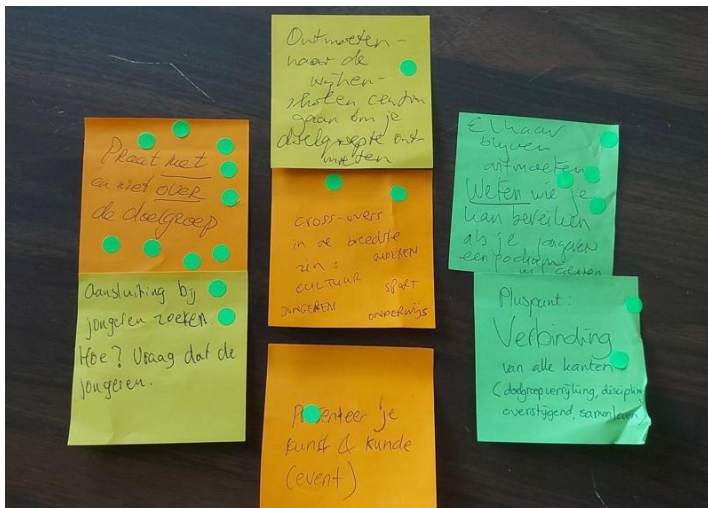 Praat met
en niet over
de doelgroep
Aansluiting bij
jongeren zoeken.
Hoe? Vraag dat de
jongeren.
Ontmoeten -
naar de
wijken -
scholen centra
gaan om je
doelgroep te ont
moeten
cross-overs
in de breedste
zin: OUDEREN
CULTUUR SPORT
JONGEREN ONDERWIJS
je
kunst & kunde
(event)
Elkaar
blijven
ontmoeten
Weten wie je
kan bereiken
als je jongeren
een podium
Pluspunt:
Verbinding
van alle kanten
(doelgroepverrijking, disciplin
overstijgend, samenleven)